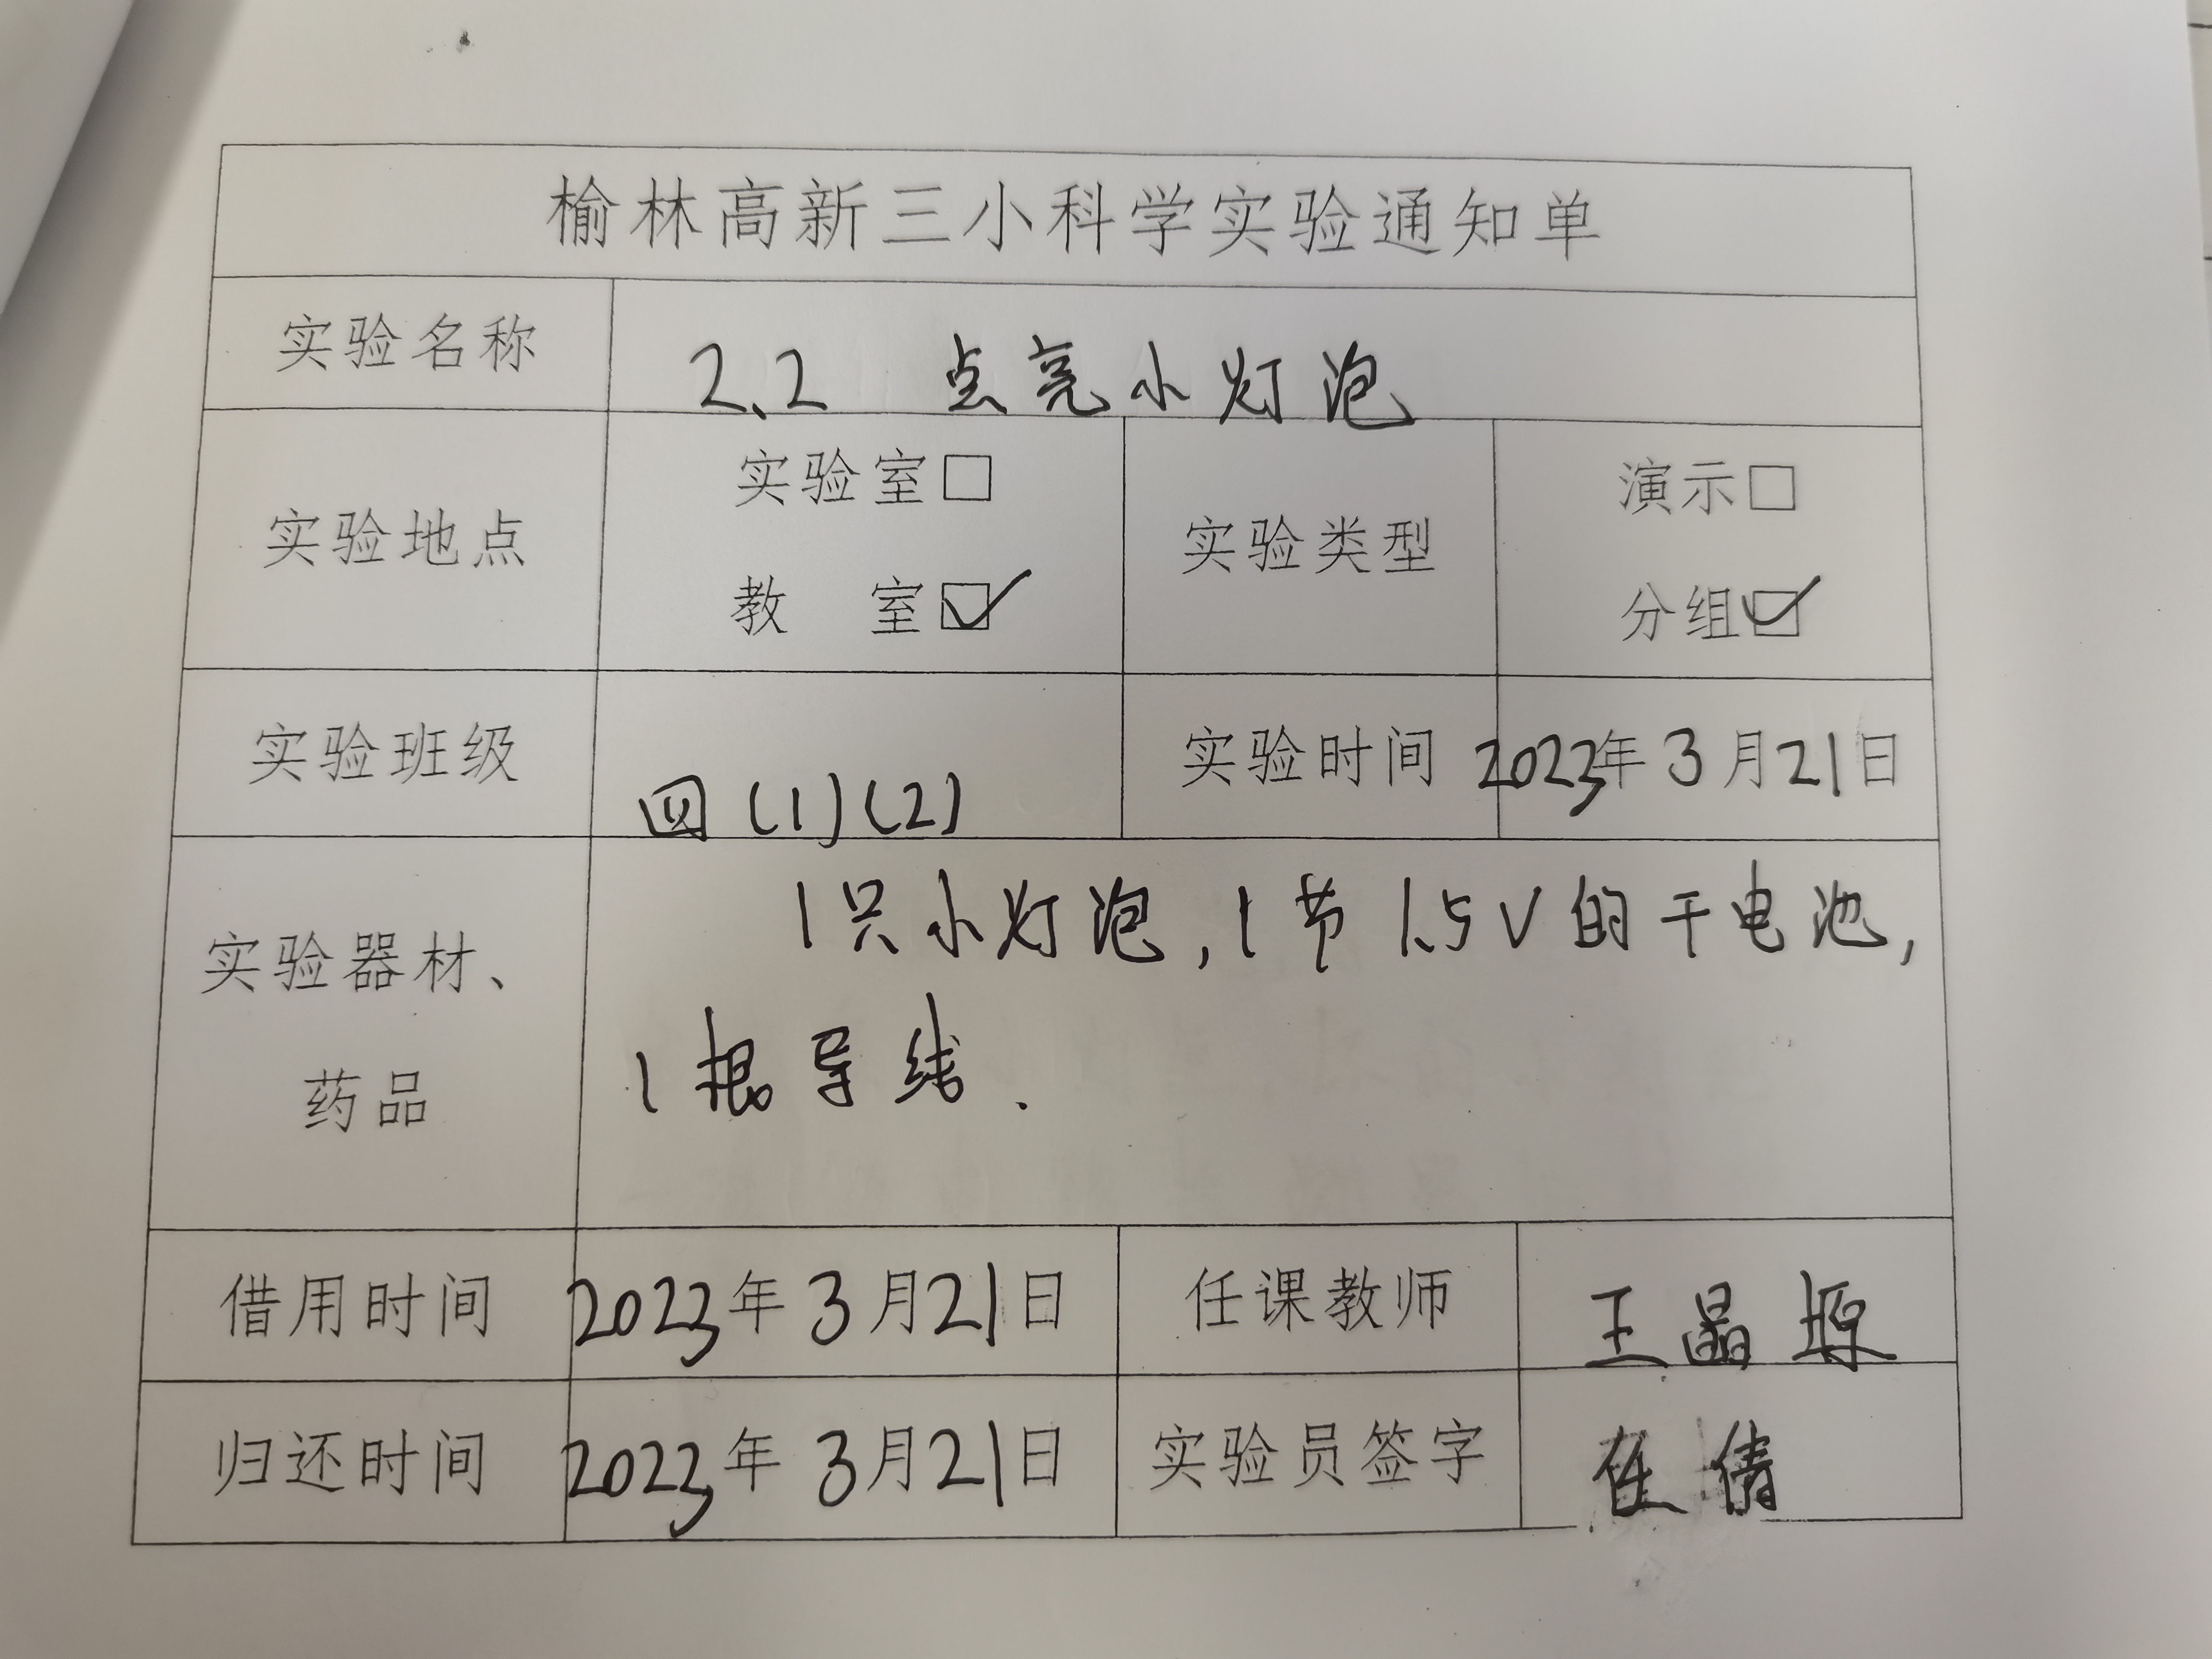 榆林高新三小科学实验通知单
实验名称 2.2 点亮小灯泡
实验室□
演示□
实验地点
实验类型
教 室☑
分组☑
实验班级 四(1)(2) 实验时间 2023年3月21日
1只小灯泡,1节1.5V的干电池,
实验器材、
1根导线.
药品
借用时间 2023年3月21日 任课教师 王晶塬
归还时间 2023年3月21日 实验员签字 任倩